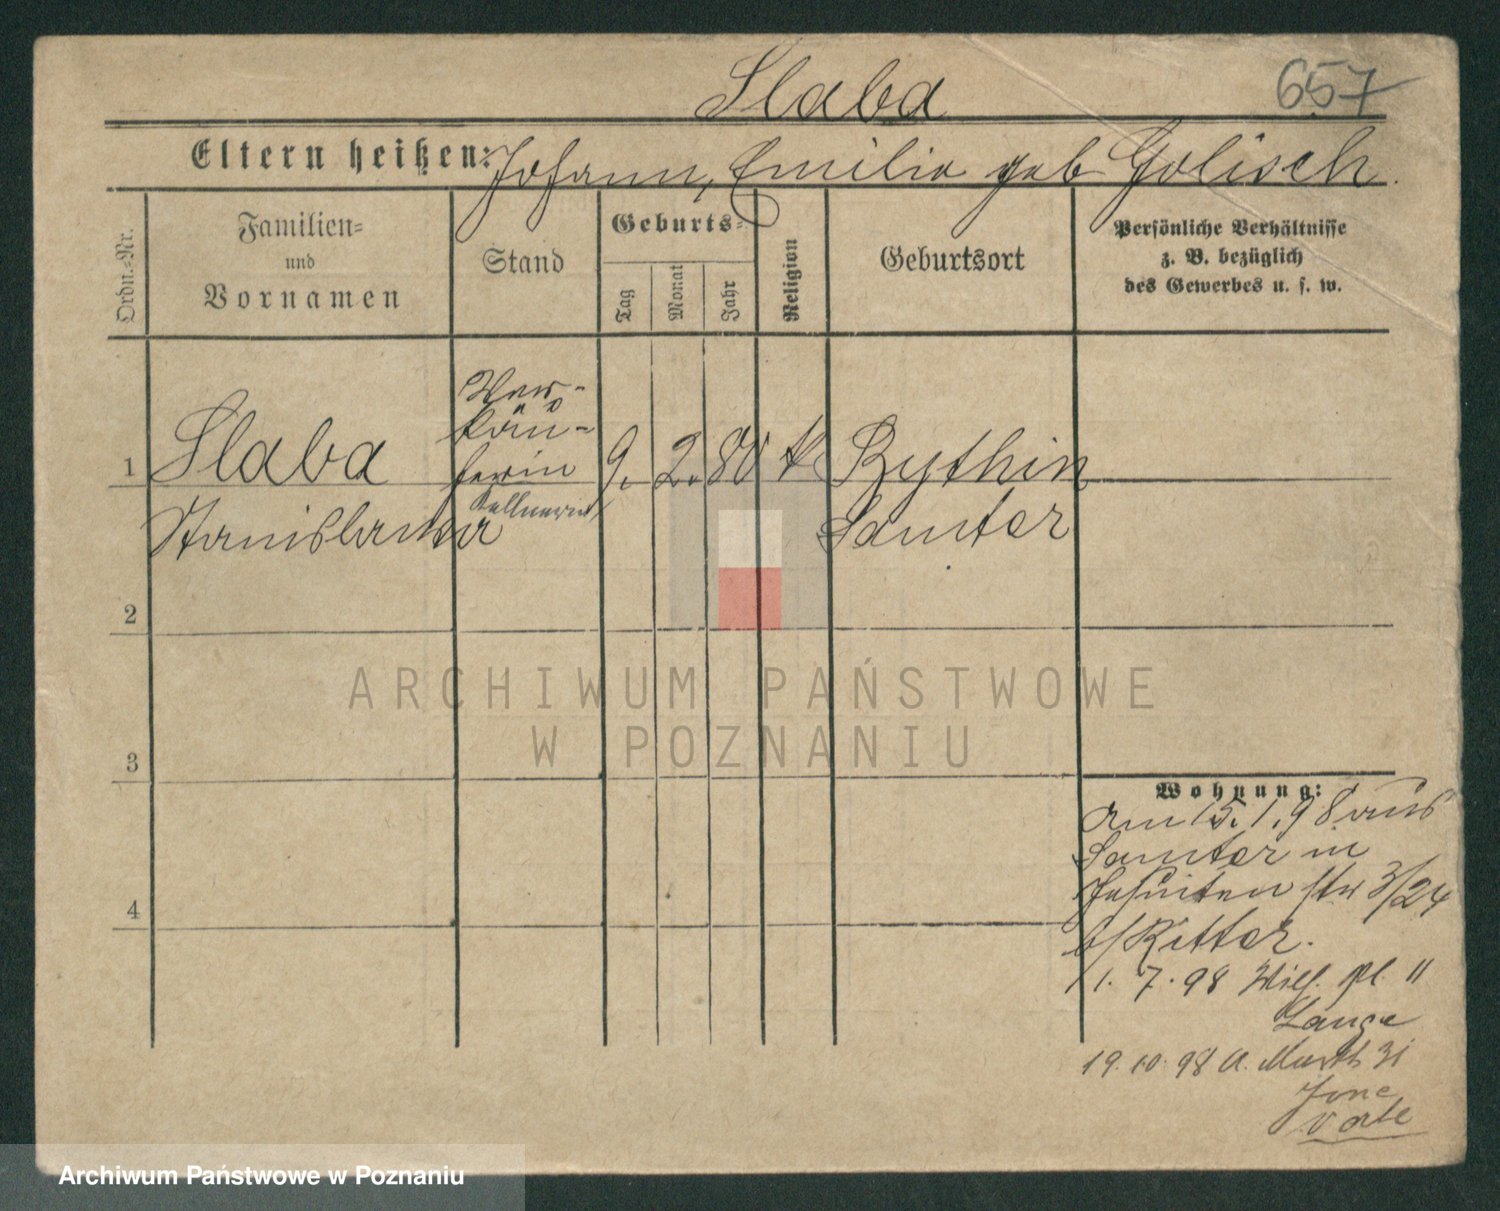 Slaba 657
Eltern heißen: Johann, Emilia geb Golisch.
Ordn.-Nr.
Familien-
und
Vornamen
Stand
Geburts-
Tag
Monat
Jahr
Religion
Geburtsort
Persönliche Verhältnisse
z. B. bezüglich
des Gewerbes u. s. w.
1 Slaba
Stanislawa
Ver-
käu-
ferin
Kellnerin
9. 2. 80 k
Bythin
Samter
2
3
4
ARCHIWUM PAŃSTWOWE
W POZNANIU
Wohnung:
Am 15.1.98 aus
Samter in
Jesuiten str 3/24
b/Ritter.
1.7.98 Wilh. pl. 11
Lange
19.10.98 A. Markt 31
Archiwum Państwowe w Poznaniu